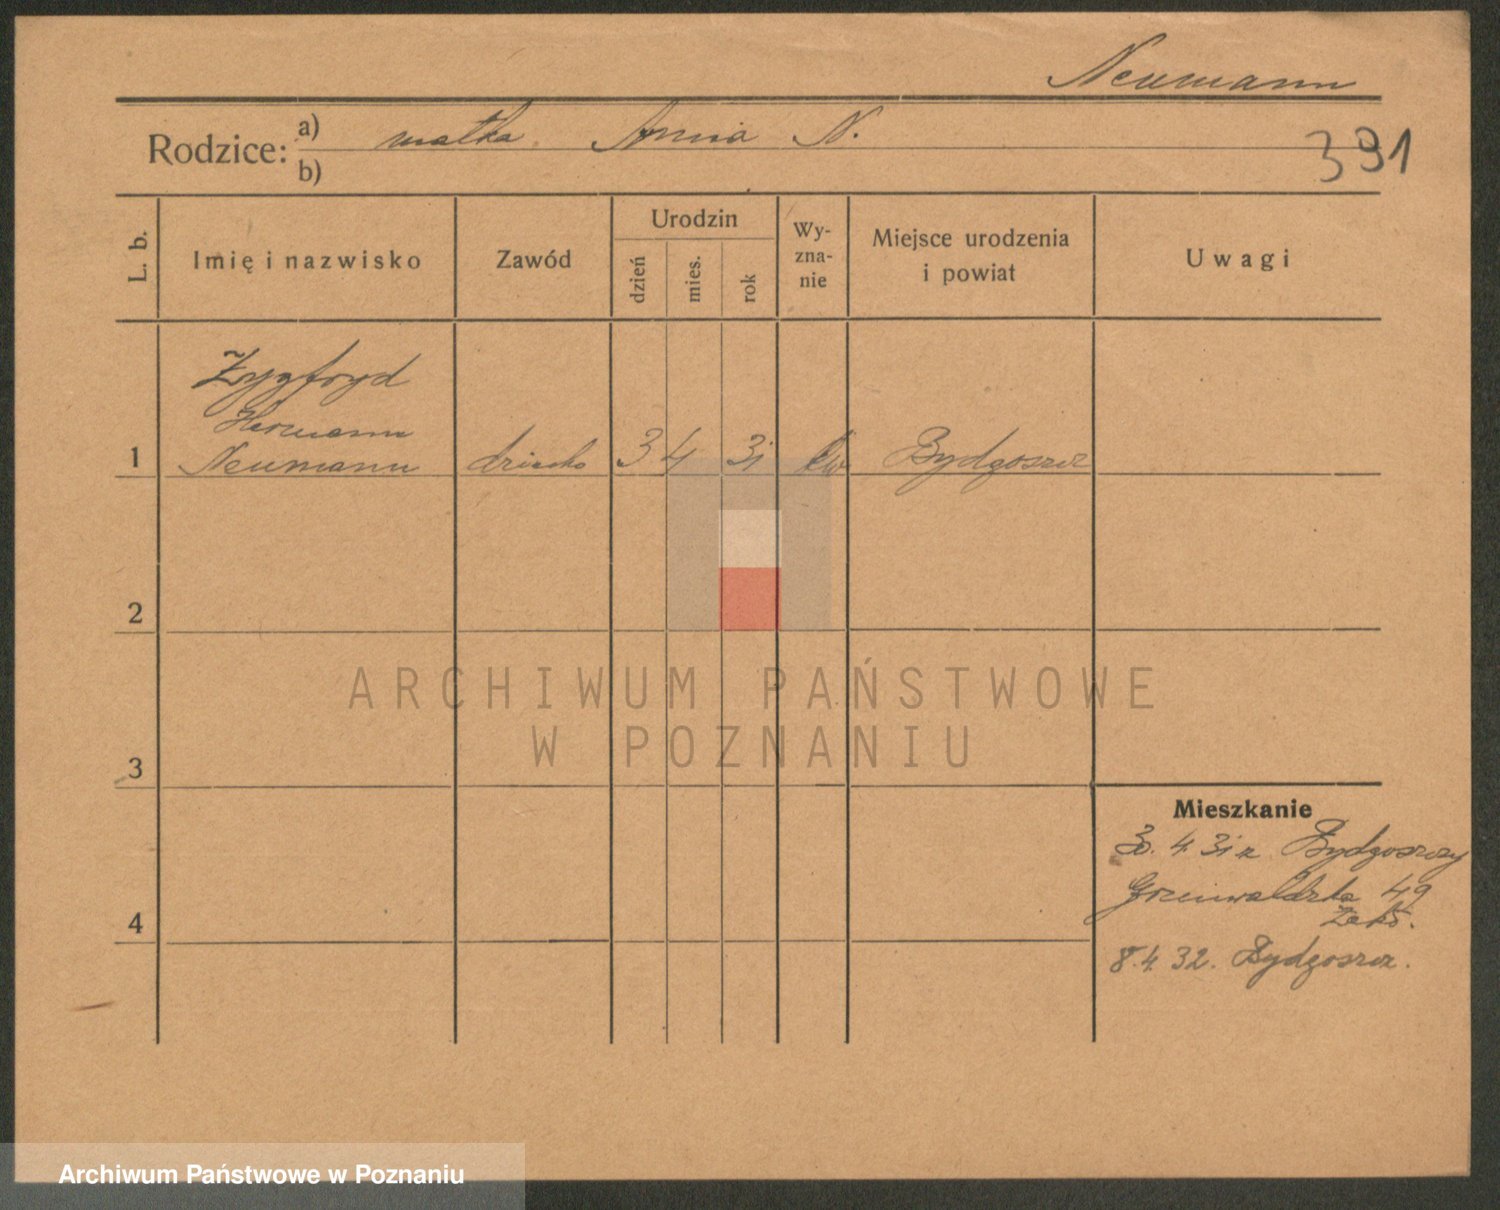 Neumann
Rodzice: a) matka Anna N.
b)
391
L. b. Imię i nazwisko Zawód Urodzin dzień mies. rok Wy-zna-nie Miejsce urodzenia i powiat Uwagi
Zygfryd
Hermann
1 Neumann dziecko 3 4 31 ew Bydgoszcz
2
ARCHIWUM PAŃSTWOWE
W POZNANIU
3
Mieszkanie
30. 4. 31 z Bydgoszczy
Grunwaldzka 49
4
8.4.32. Bydgoszcz.
Archiwum Państwowe w Poznaniu